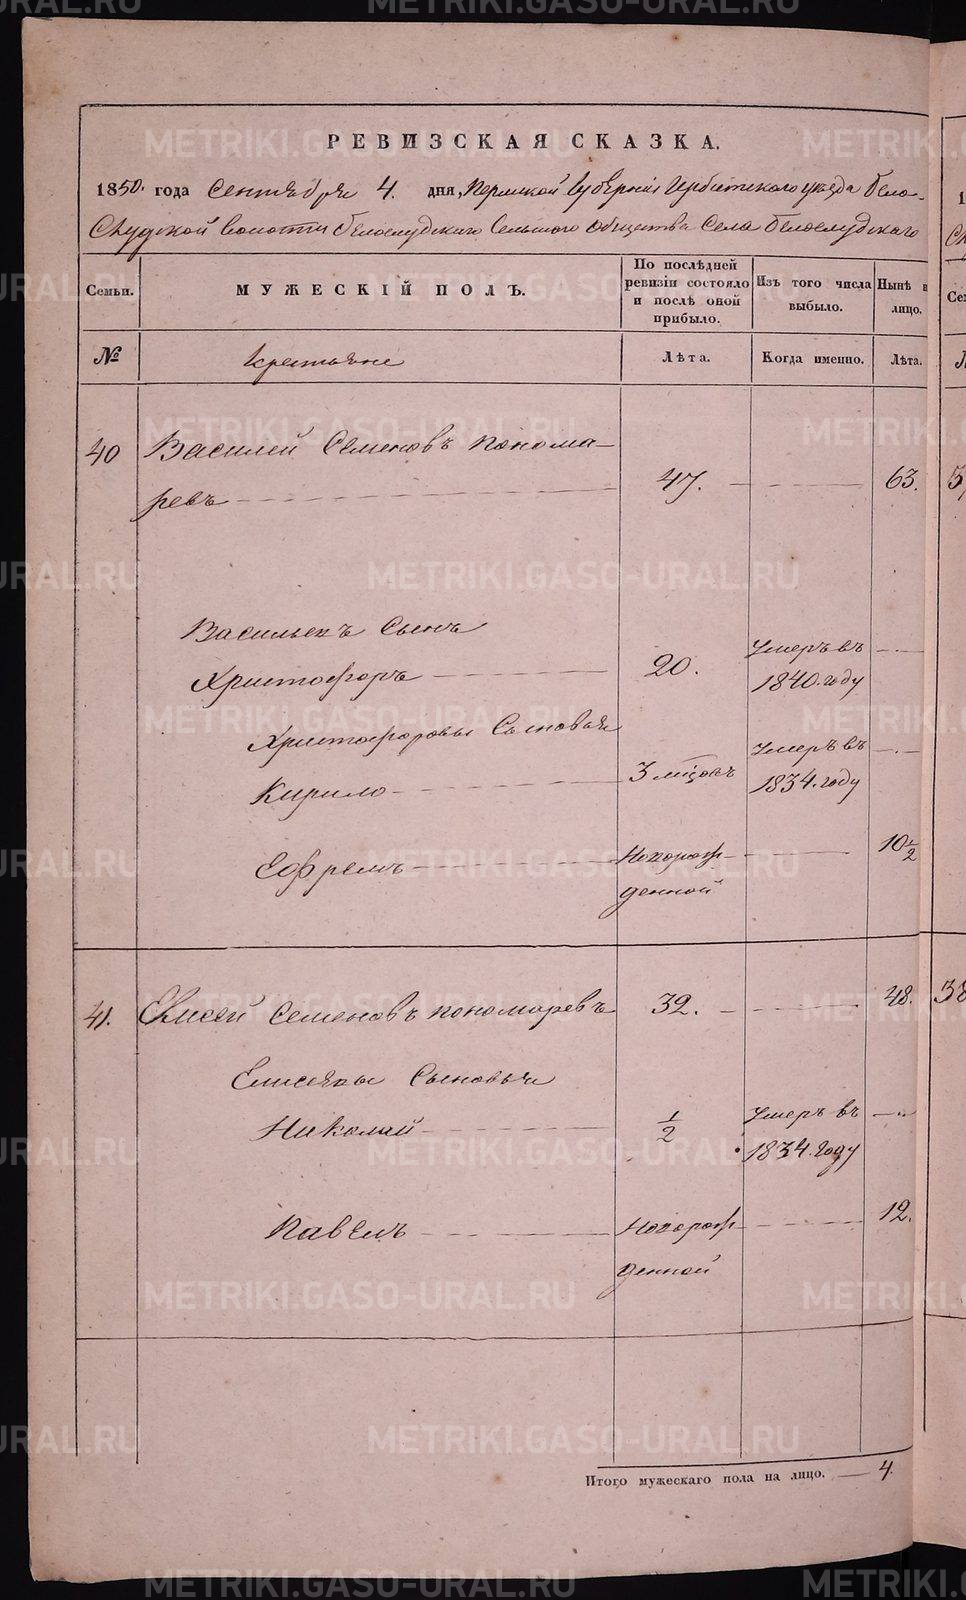 РЕВИЗСКАЯ СКАЗКА.
1850. года Сентября 4. дня, Пермской Губернии Ирбитского уезда Бело-
Слудской волости Белослудского Сельского общества Села Белослудского
Семьи.
МУЖЕСКІЙ ПОЛЪ.
По послѣдней
ревизіи состояло
и послѣ оной
прибыло.
Изъ того числа
выбыло.
Нынѣ в
лицо.
№
Крестьяне
Лѣта.
Когда именно.
Лѣта.
40 Василей Семеновъ Понома-
ревъ 47. 63.
Васильевъ Сынъ
Христофоръ 20. Умеръ въ
1840. году
Христофоровы Сыновья
Кирило 3 мѣсяцъ Умеръ въ
1834. году
Ефремъ Новорож-
денной 10 1/2
41. Елисей Семеновъ Пономаревъ 32. 48.
Елисѣевы Сыновья
Николай 1/2 Умеръ въ
1834. году
Павелъ Новорож-
денной 12.
Итого мужескаго пола на лицо. 4.
METRIKI.GASO-URAL.RU